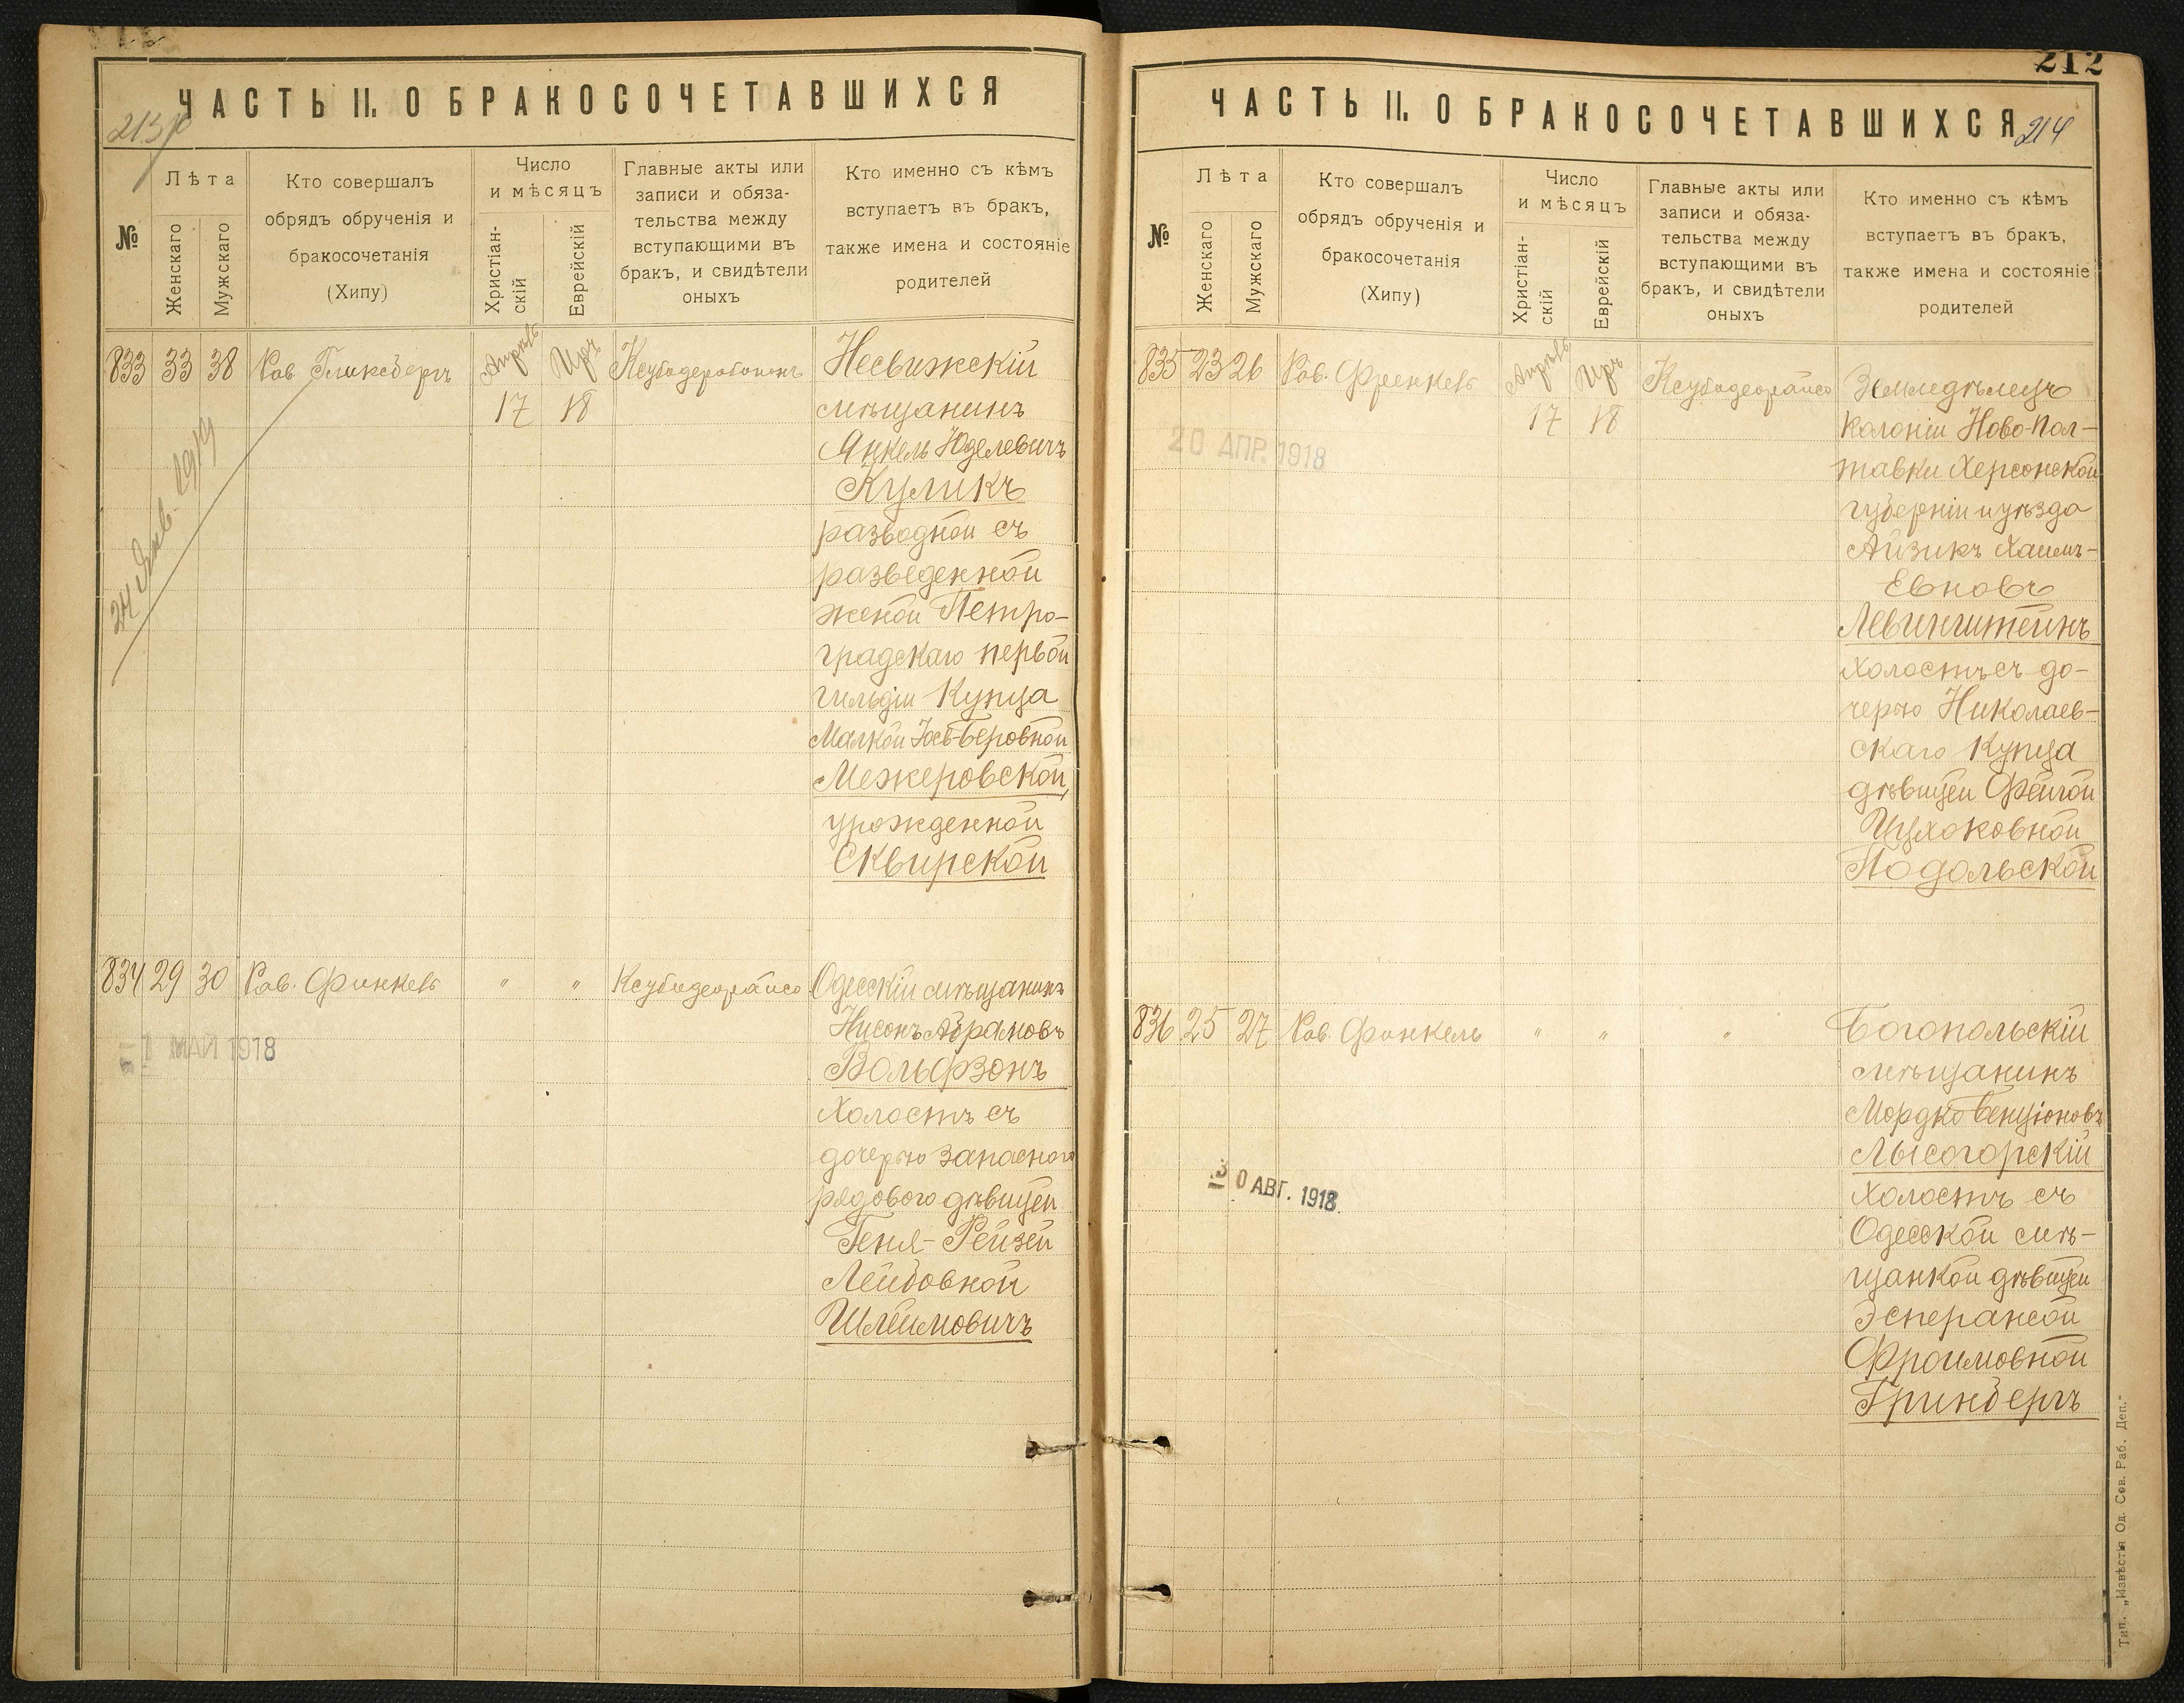 ЧАСТЬ II. О БРАКОСОЧЕТАВШИХСЯ
№
Лѣта
Женскаго
Мужскаго
Кто совершалъ
обрядъ обрученія и
бракосочетанія
(Хипу)
Число
и мѣсяцъ
Христіан-
скій
Еврейскій
Главные акты или
записи и обяза-
тельства между
вступающими въ
бракъ, и свидѣтели
оныхъ
Кто именно съ кѣмъ
вступаетъ въ бракъ,
также имена и состояніе
родителей
833 33 38 Рав Гликсбергъ
Апрѣль 17
Иръ 18
Несвижскій
мѣщанинъ
Янкель Юделевичъ
Куликъ
разводной съ
разведенной
женой Петро-
градскаго первой
гильдіи Купца
Малкой Іось-Беровной
Межеровской,
урожденной
Сквирской
24 Янв. 1919
834 29 30 Рав. Финкель " " Ксубадеорайсо
1 МАЙ 1918
Одесскій мѣщанинъ
Нисонъ Абрамовъ
Вольфзонъ
Холостъ съ
дочерью запасного
рядового дѣвицей
Геня-Рейзей
Лейбовной
Шлеймовичъ
212
ЧАСТЬ II. О БРАКОСОЧЕТАВШИХСЯ
214
№
Лѣта
Женскаго
Мужскаго
Кто совершалъ
обрядъ обрученія и
бракосочетанія
(Хипу)
Число
и мѣсяцъ
Христіан-
скій
Еврейскій
Главные акты или
записи и обяза-
тельства между
вступающими въ
бракъ, и свидѣтели
оныхъ
Кто именно съ кѣмъ
вступаетъ въ бракъ,
также имена и состояніе
родителей
835 23 26 Рав. Френкель
Апрѣль 17
Иръ 18
Ксубадеорайсо
20 АПР. 1918
Земледѣлецъ
колоніи Ново-Пол-
тавки Херсонской
губерніи и уѣзда
Айзикъ Хаимъ-
Евновъ
Левинштейнъ
Холостъ съ до-
черью Николаев-
скаго Купца
дѣвицей Фейгой
Ицхоковной
Подольской
836 25 27 Рав. Финкель " " "
30 АВГ. 1918
Богопольскій
мѣщанинъ
Мордко Бенціоновъ
Лысогорскій
Холостъ съ
Одесской мѣ-
щанкой дѣвицей
Эсперансой
Фроимовной
Гринбергъ
Тип. „Извѣстія Од. Сов. Раб. Деп."